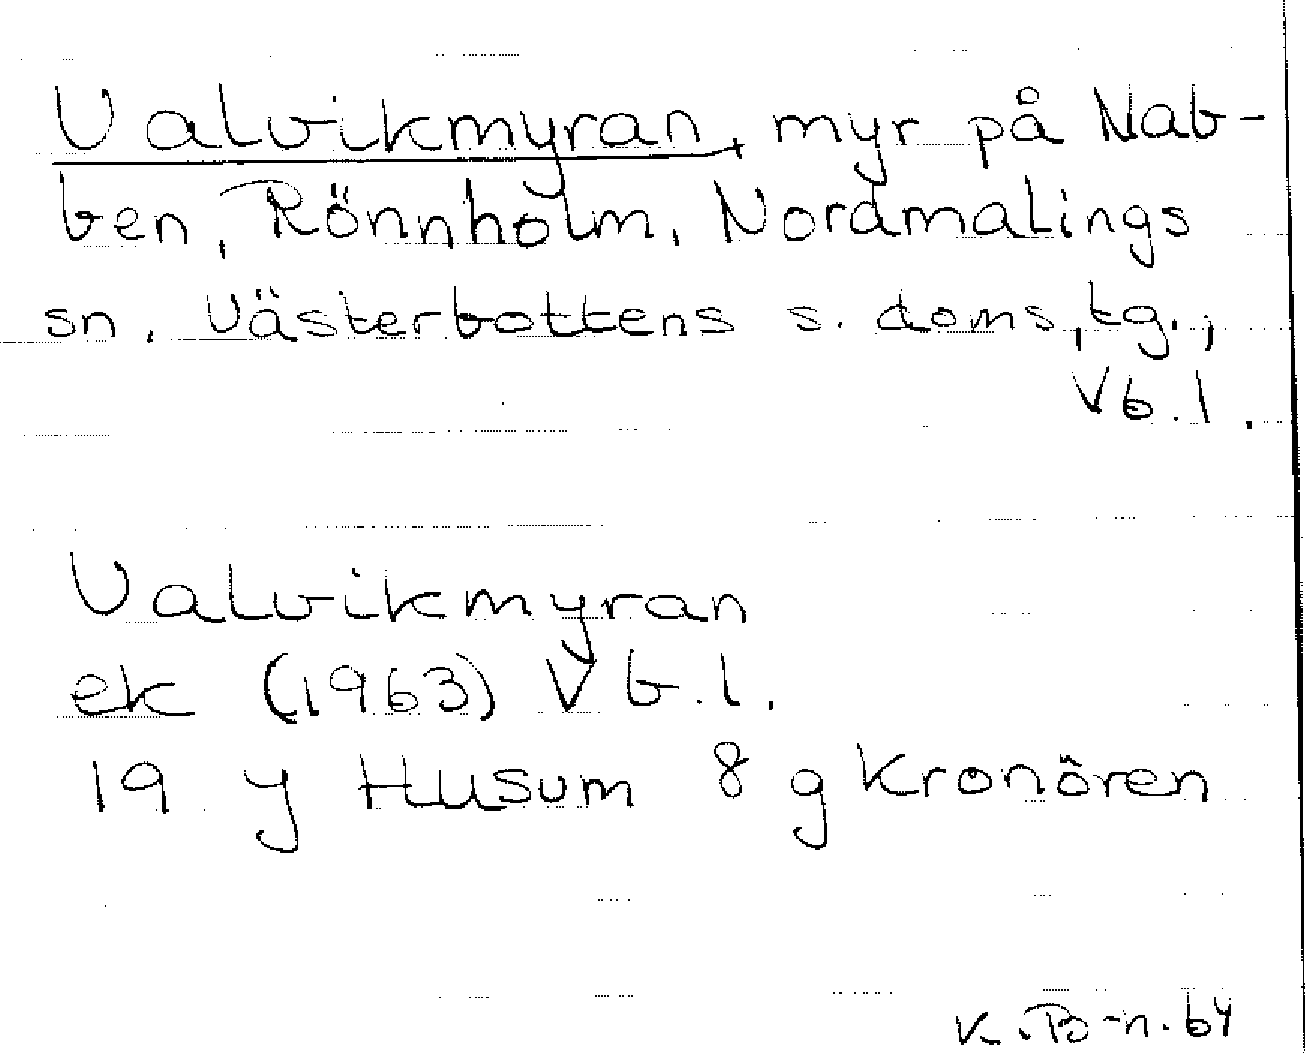 Valvikmyran, myr på Nab-
ben, Rönnholm, Nordmalings
sn, Västerbottens s. doms,tg.,
Vb.l.
Valvikmyran
ek (1963) Vb.l.
19 y Husum 8 g Kronören
K.B-n.64